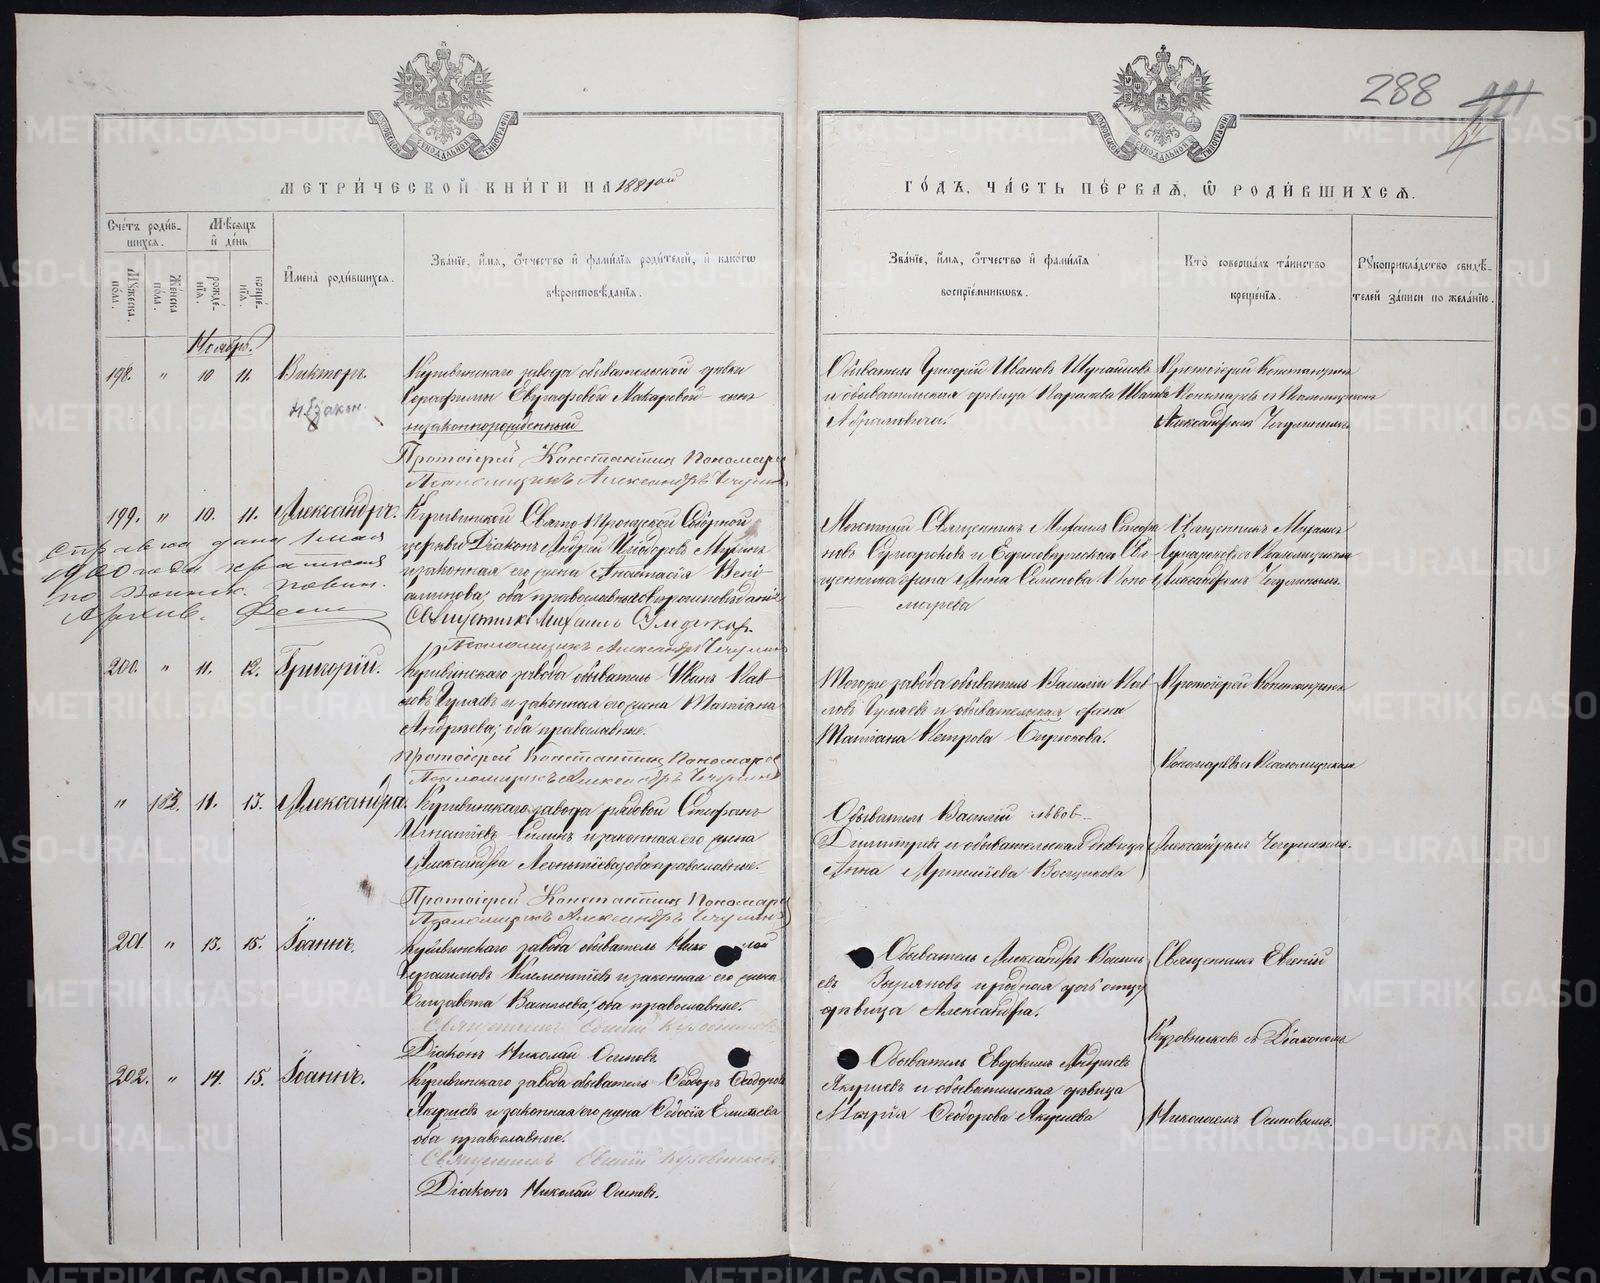 288
МЕТРИ́ЧЕСКОЙ КНИ́ГИ НА 1881 ой
ГО́ДЪ, ЧА́СТЬ ПЕ́РВАѦ, Ѽ РОДИ́ВШИХСѦ.
Сче́тъ роди́в-
шихсѧ.
Мѣсѧцъ
и҆ де́нь
И҆мена̀ роди́вшихсѧ.
Зва́нїе, и҆́мѧ, ѻ҆́тчество и҆ фами́лїѧ роди́телей, и҆ како́гѡ
вѣроисповѣ́данїѧ.
Зва́нїе, и҆́мѧ, ѻ҆́тчество и҆ фами́лїѧ
воспрїе́мникѡвъ.
Кто̀ соверша́лъ та́инство
креще́нїѧ.
Рꙋкоприкла́дство свидѣ́-
телей за́писи по жела́нїю.
Мꙋ́жеска
по́ла.
Же́нска
по́ла.
рожде́-
нїѧ.
креще́-
нїѧ.
Ноябрь.
198. " 10 11. Викторъ.
Кушвинскаго завода обывательской дѣвки
Серафимы Евграфовой Макаровой сынъ
незаконнорожденный
незакон.
Протоіерей Константинъ Пономаревъ
Псаломщикъ Александръ Чечулинъ
Обыватель Григорій Ивановъ
и обывательская дѣвица Параскева
Абрамовича.
Протоіерей Константинъ
Пономаревъ съ Псаломщикомъ
Александромъ Чечулинымъ.
199. " 10. 11. Александръ.
Кушвинской Свято-Троицкой Соборной
церкви Діаконъ Андрей
и законная его жена Анастасія Вені-
аминова; оба православнаго вѣроисповѣданія
Священникъ Михаилъ
Псаломщикъ Александръ Чечулинъ
Справка дана 1 мая
1900 года
по воинск. повин.
Архив.
Мѣстный Священникъ Михаилъ
новъ и Единовѣрческая Свя-
щенника жена Анна Семенова Поно-
марева
Священникъ Михаилъ
съ Псаломщикомъ
Александромъ Чечулинымъ.
200. " 11. 12. Григорій.
Кушвинскаго завода обыватель Иванъ Пав-
ловъ Гуляевъ и законная его жена Татіана
Андреева; оба православные.
Протоіерей Константинъ Пономаревъ
Псаломщикъ Александръ Чечулинъ
Тогоже завода обыватель Василій Пав-
ловъ Гуляевъ и обывательская жена
Татіана Петрова Бирюкова.
Протоіерей Константинъ
Пономаревъ съ Псаломщикомъ
" 183. 11. 13. Александра.
Кушвинскаго завода рядовой Стефанъ
Игнатіевъ Силинъ и законная его жена
Александра Леонтіева; оба православные.
Протоіерей Константинъ Пономаревъ
Псаломщикъ Александръ Чечулинъ
Обыватель Василій
и обывательская дѣвица
Анна
Александромъ Чечулинымъ.
201. " 13. 15. Іоаннъ.
Кушвинскаго завода обыватель
Герасимовъ Клементіевъ и законная его жена
Елизавета Васильева; оба православные.
Священникъ Евгеній Кузовниковъ
Діаконъ Николай Осиповъ
Обыватель Александръ Василь-
евъ Зыряновъ и родная дочь отцу
дѣвица Александра.
Священникъ Евгеній
Кузовниковъ съ Діакономъ
202. " 14. 15. Іоаннъ.
Кушвинскаго завода обыватель Ѳеодоръ Ѳеодоровъ
Якушевъ и законная его жена Ѳедосія
оба православные.
Священникъ Евгеній Кузовниковъ
Діаконъ Николай Осиповъ.
Обыватель Евдокимъ Андреевъ
Якушевъ и обывательская дѣвица
Марія Ѳеодорова Якушева
Николаемъ Осиповымъ.